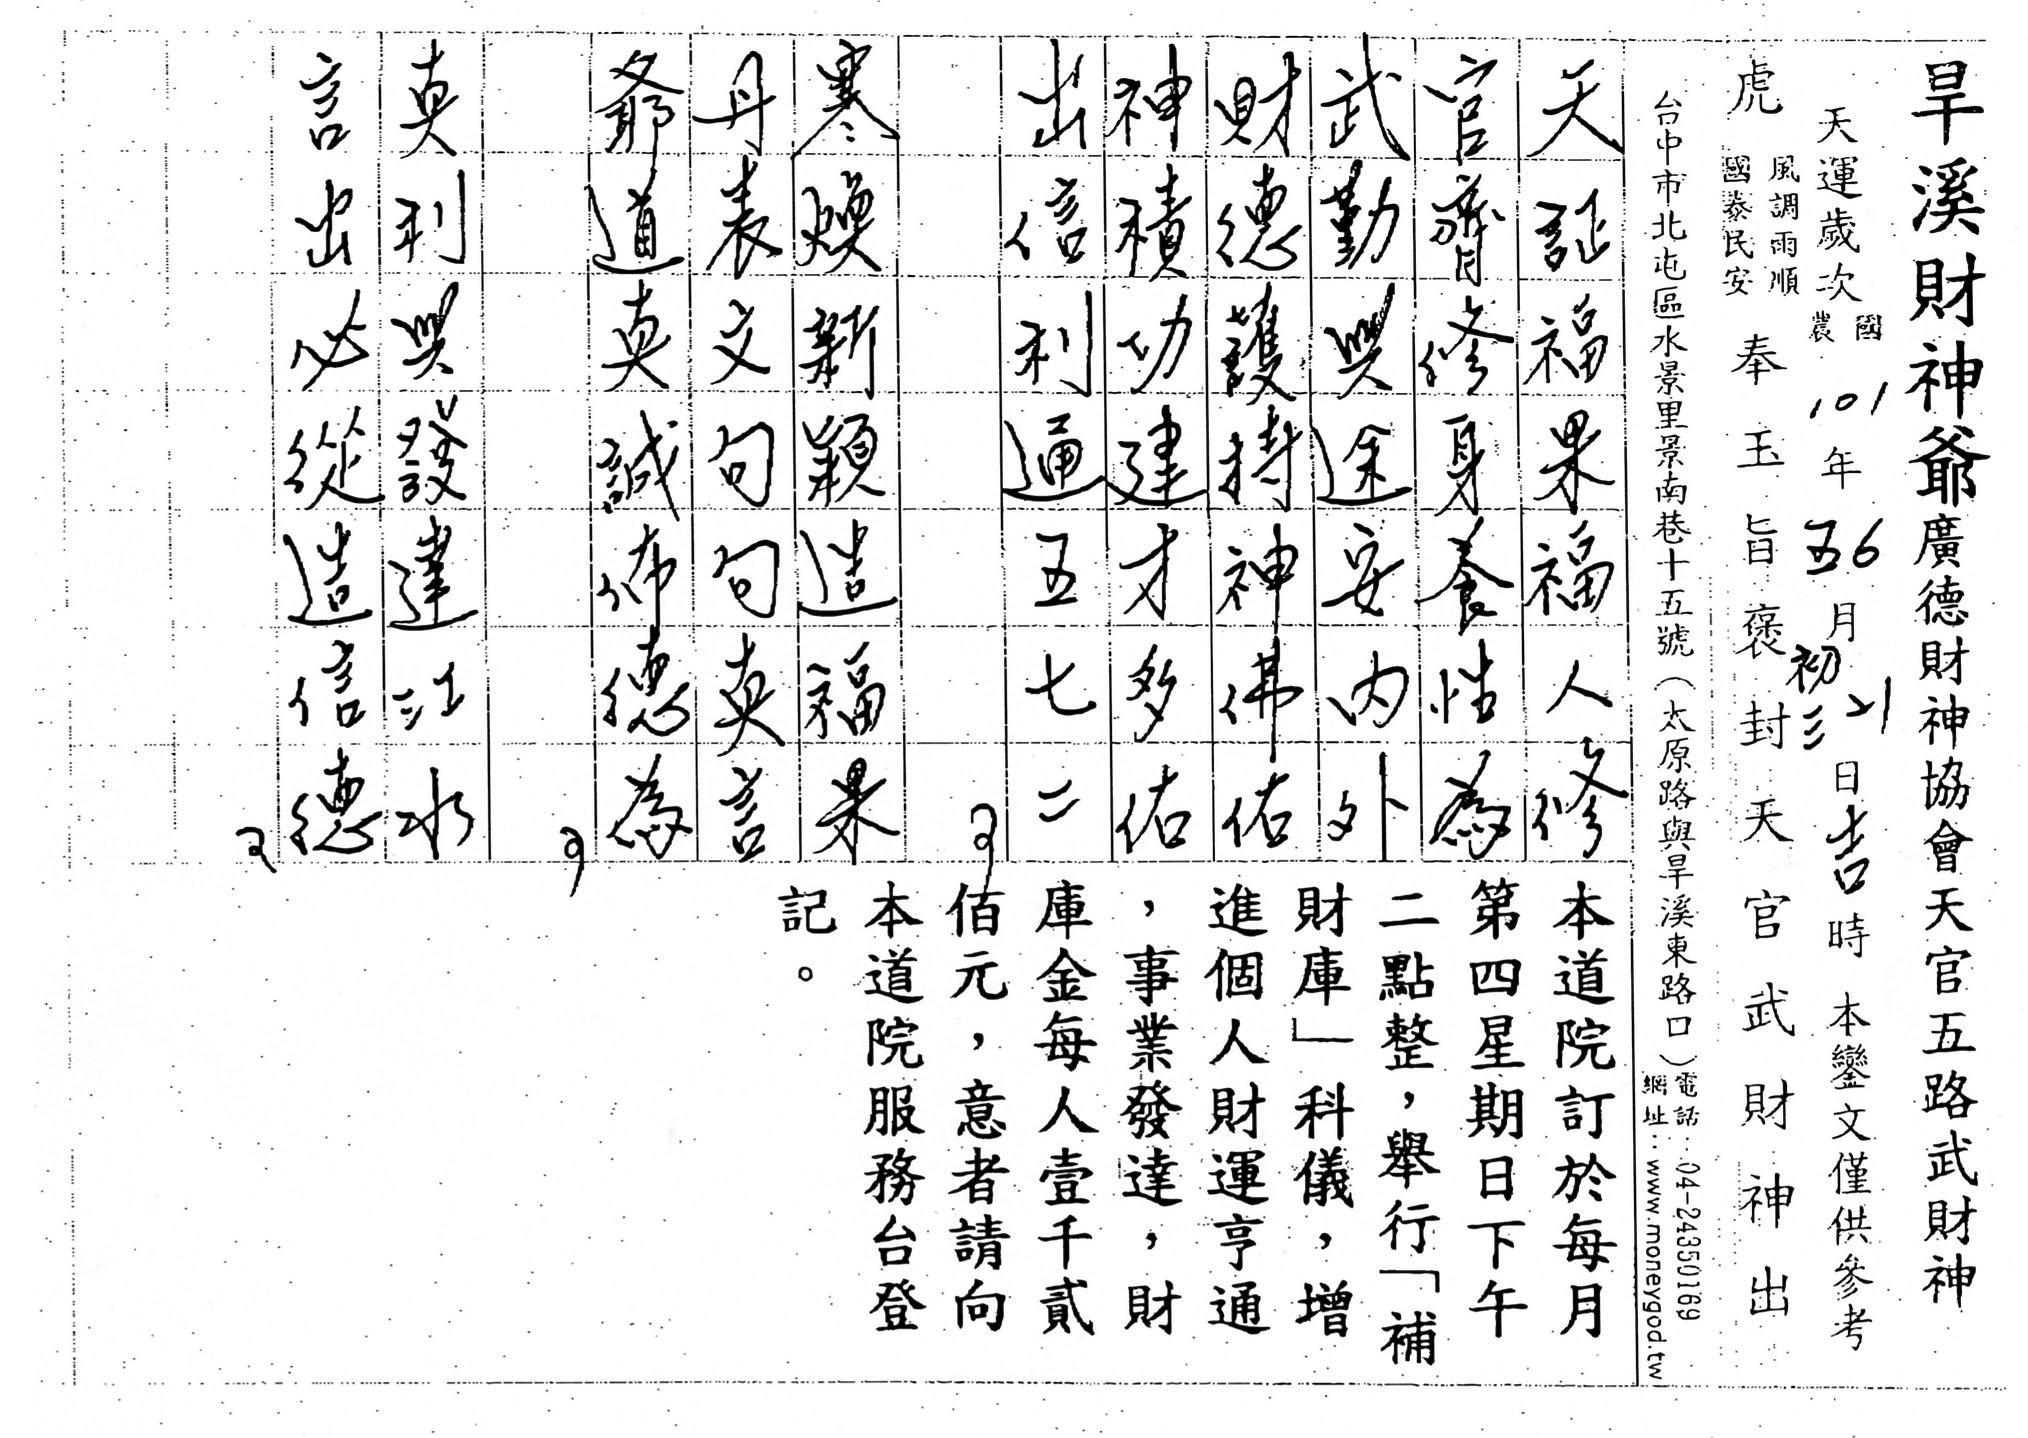 旱溪財神爺廣德財神協會天官五路武財神
天運歲次國農101年6五月21初三日吉時 本鑾文僅供參考
虎 風調雨順 國泰民安 奉玉旨褒封天官武財神出
台中市北屯區水景里景南巷十五號(太原路與旱溪東路口)
電話:04-24350169
網址:www.moneygod.tw
天証福果福人修
官齋修身養性為
武勤興途安內外
財德護持神佛佑
神積功建才多佑
出信利通五七二
寒煥新穎造福果
丹表文句句真言
爺道真誠佈德為
真利興發達江水
言出必從造信德
本道院訂於每月
第四星期日下午
二點整,舉行「補
財庫」科儀,增
進個人財運亨通
,事業發達,財
庫金每人壹千貳
佰元,意者請向
本道院服務台登
記。